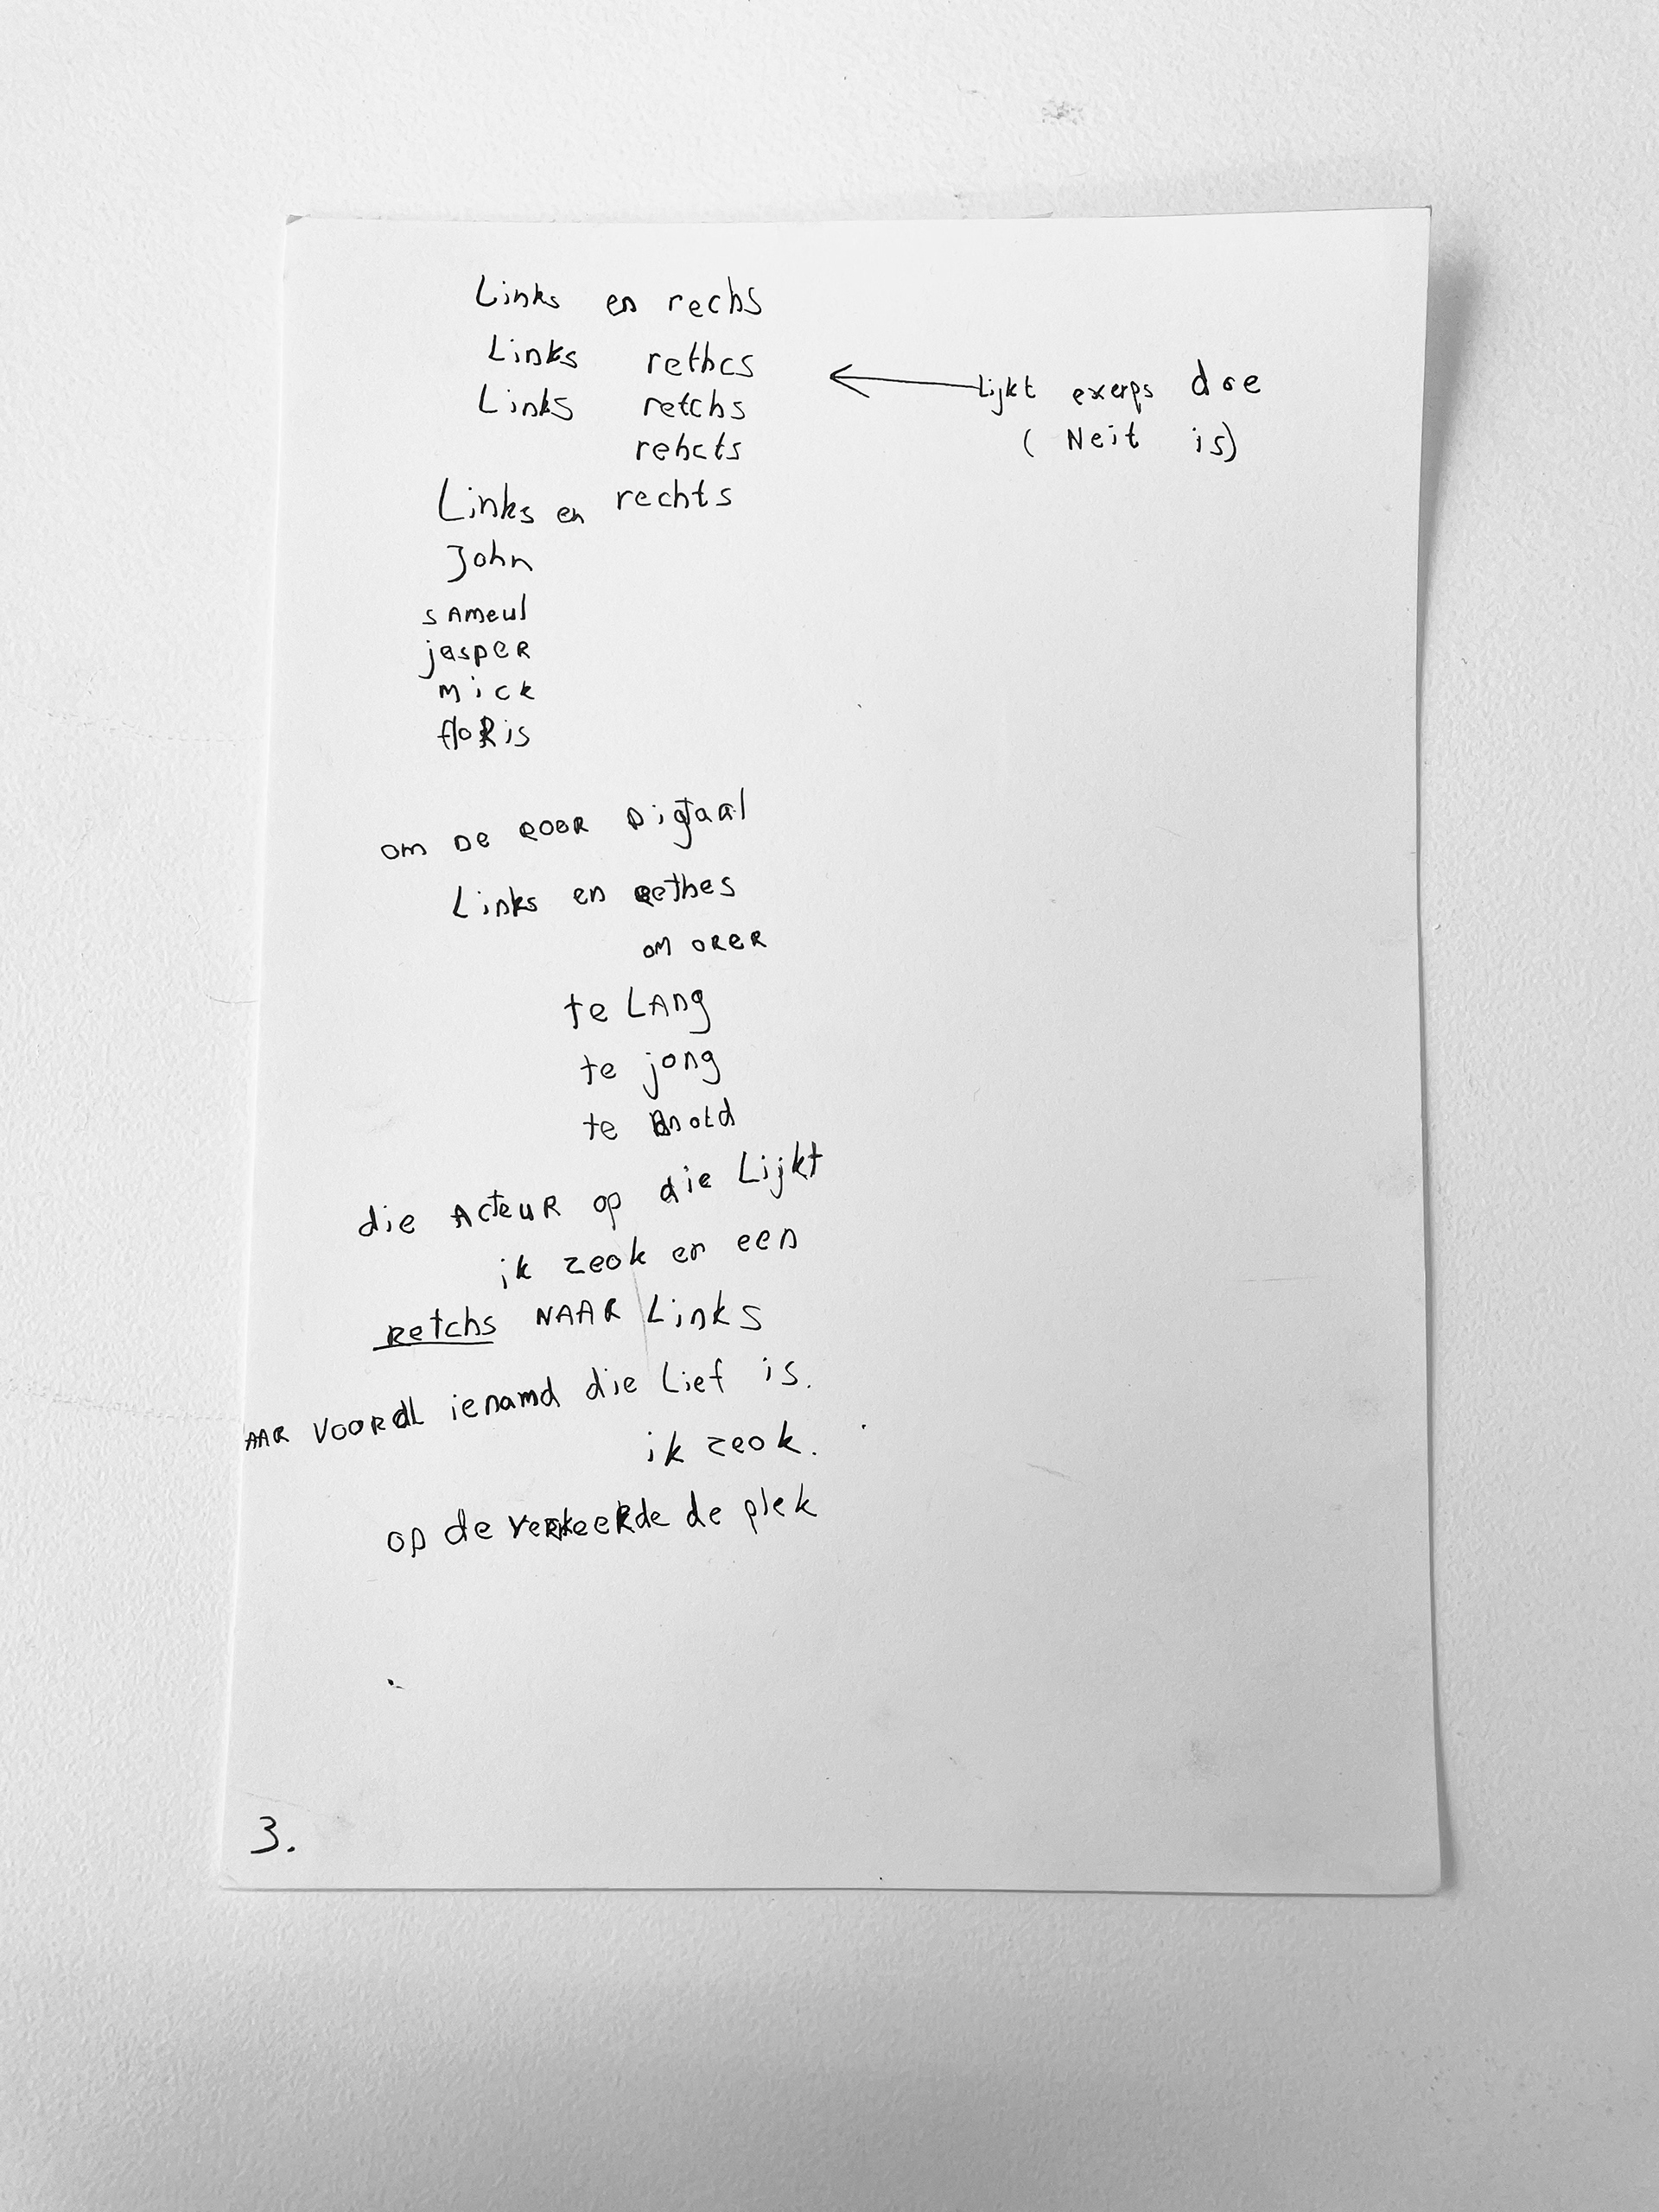 Links en rechs
Links rethcs
Links retchs
rehcts
Links en rechts
lijkt exerps doe
( Neit is)
John
sAmeul
jaspeR
mick
floRis
om De Digtaal
Links en
om oreR
te LAng
te jong
te
die ActeuR op die Lijkt
ik zeok er een
Retchs NAAR Links
AAR VooRdL ienamd die Lief is.
ik zeok.
op de veRkeeRde de plek
3.